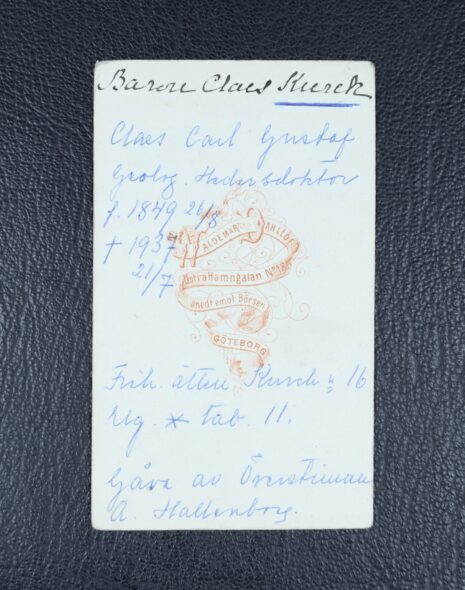 Baron Claes Kurck
Claes Carl Gustaf
Geolog. Hedersdoktor
f. 1849 26/8
† 1937
21/7
WALDEMAR DAHLLÖF
Östra Hamngatan No 18
snedt emot Börsen
GÖTEBORG
Frih. ätten Kurck n: 16
Elg. * tab. 11.
Gåva av Överstinnan
A. Hallenborg.